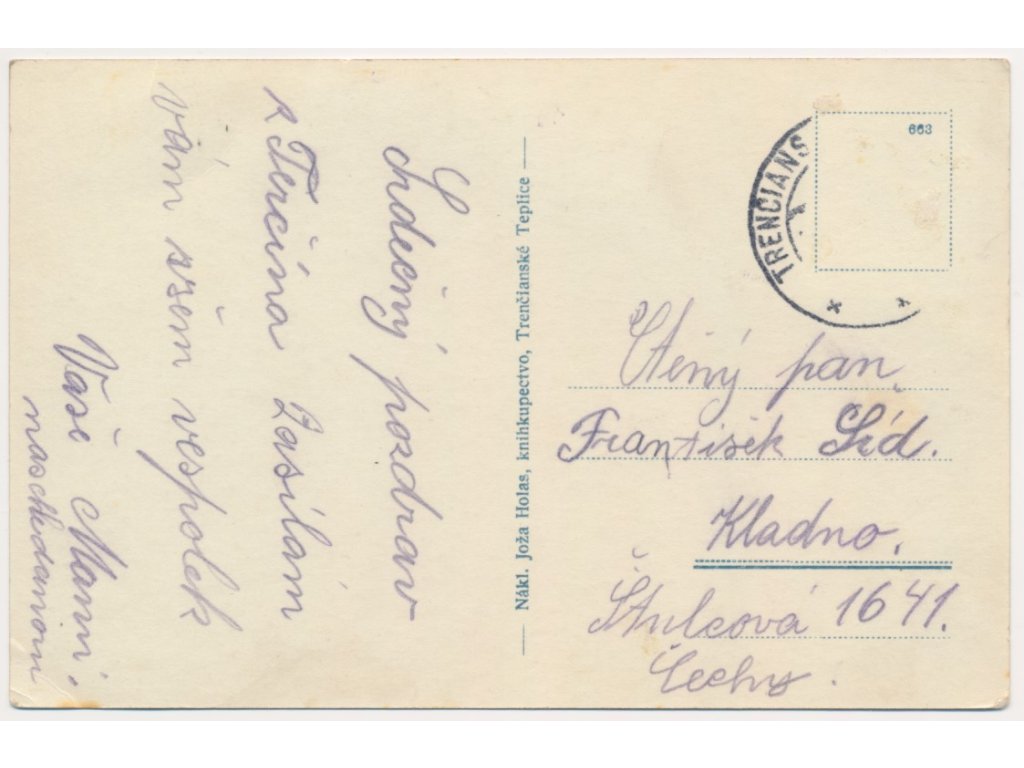 Srdečný pozdrav
z Terčína Zasílám
vám všem vespolek
Vaše Mamí.
Nákl. Joža Holas, knihkupectvo, Trenčianské Teplice
663
TRENČIANS
Ctěný pan,
František Szd.
Kladno.
Štulcová 1641.
Čechy.